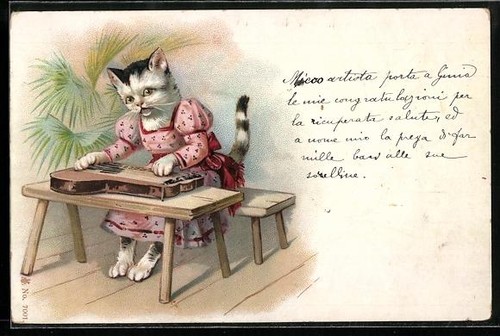 Micco artista porta a Ginia
le mie congratulazioni per
la ricuperata salute, ed
a nome mio la prega d'far
mille baci alle sue
sorelline.
No. 7001.